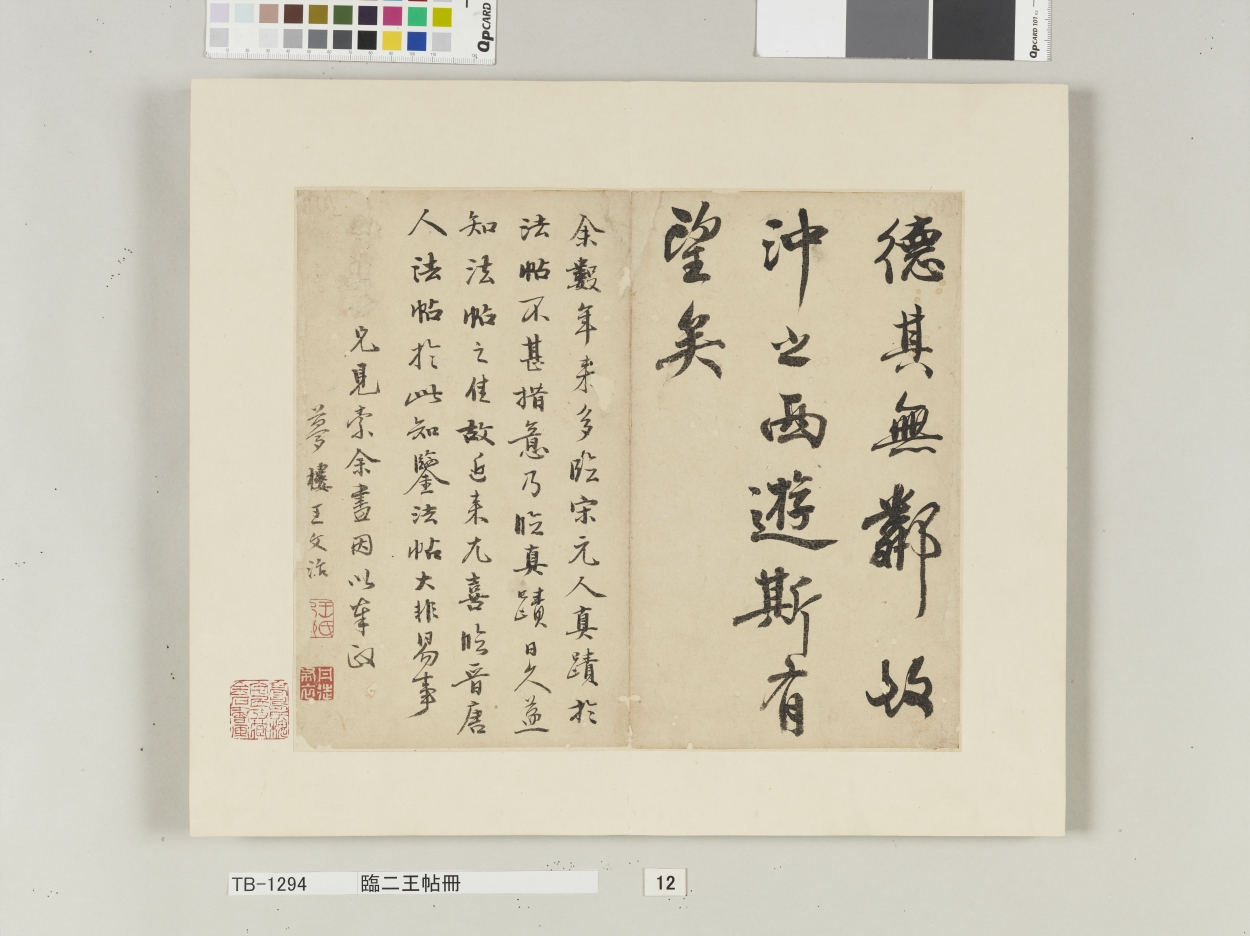 德其無鄰故
沖之西遊斯有
望矣
余數年来多臨宋元人真蹟於
法帖不甚措意乃臨真蹟日久益
知法帖之佳故近来尤喜臨晋唐
人法帖於此知鑒法帖大非易事
兄見索余書因以奉政
夢樓王文治
TB-1294 臨二王帖冊
12
QPCARD
QPCARD 101